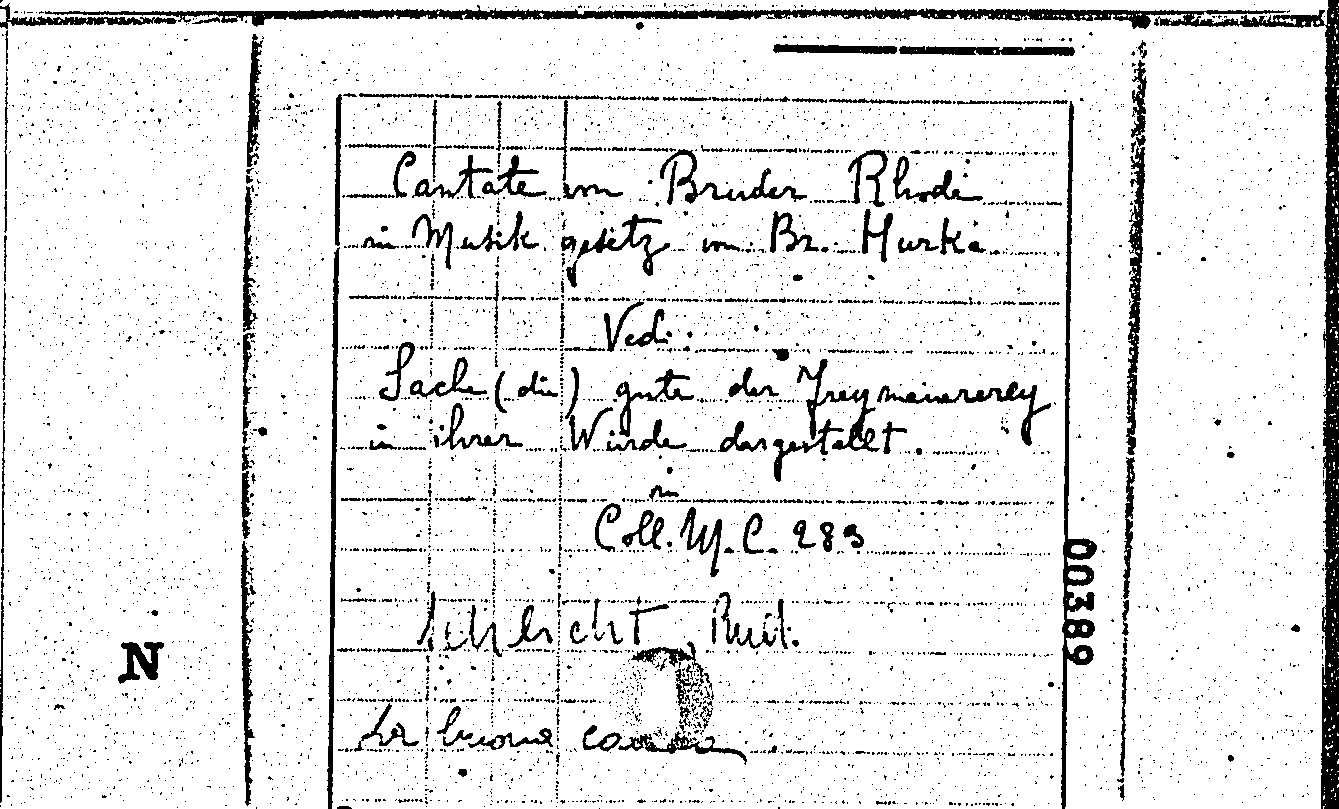 Cantate von Bruder Rhode
in Musik gesetz von Br. Hurka.
Vedi:
Sache (die) gute der Freymaurerey
in ihrer Würde dargestellt.
in
Coll. M. C. 283
00389
Schlecht, Rud.
N
La buona causa